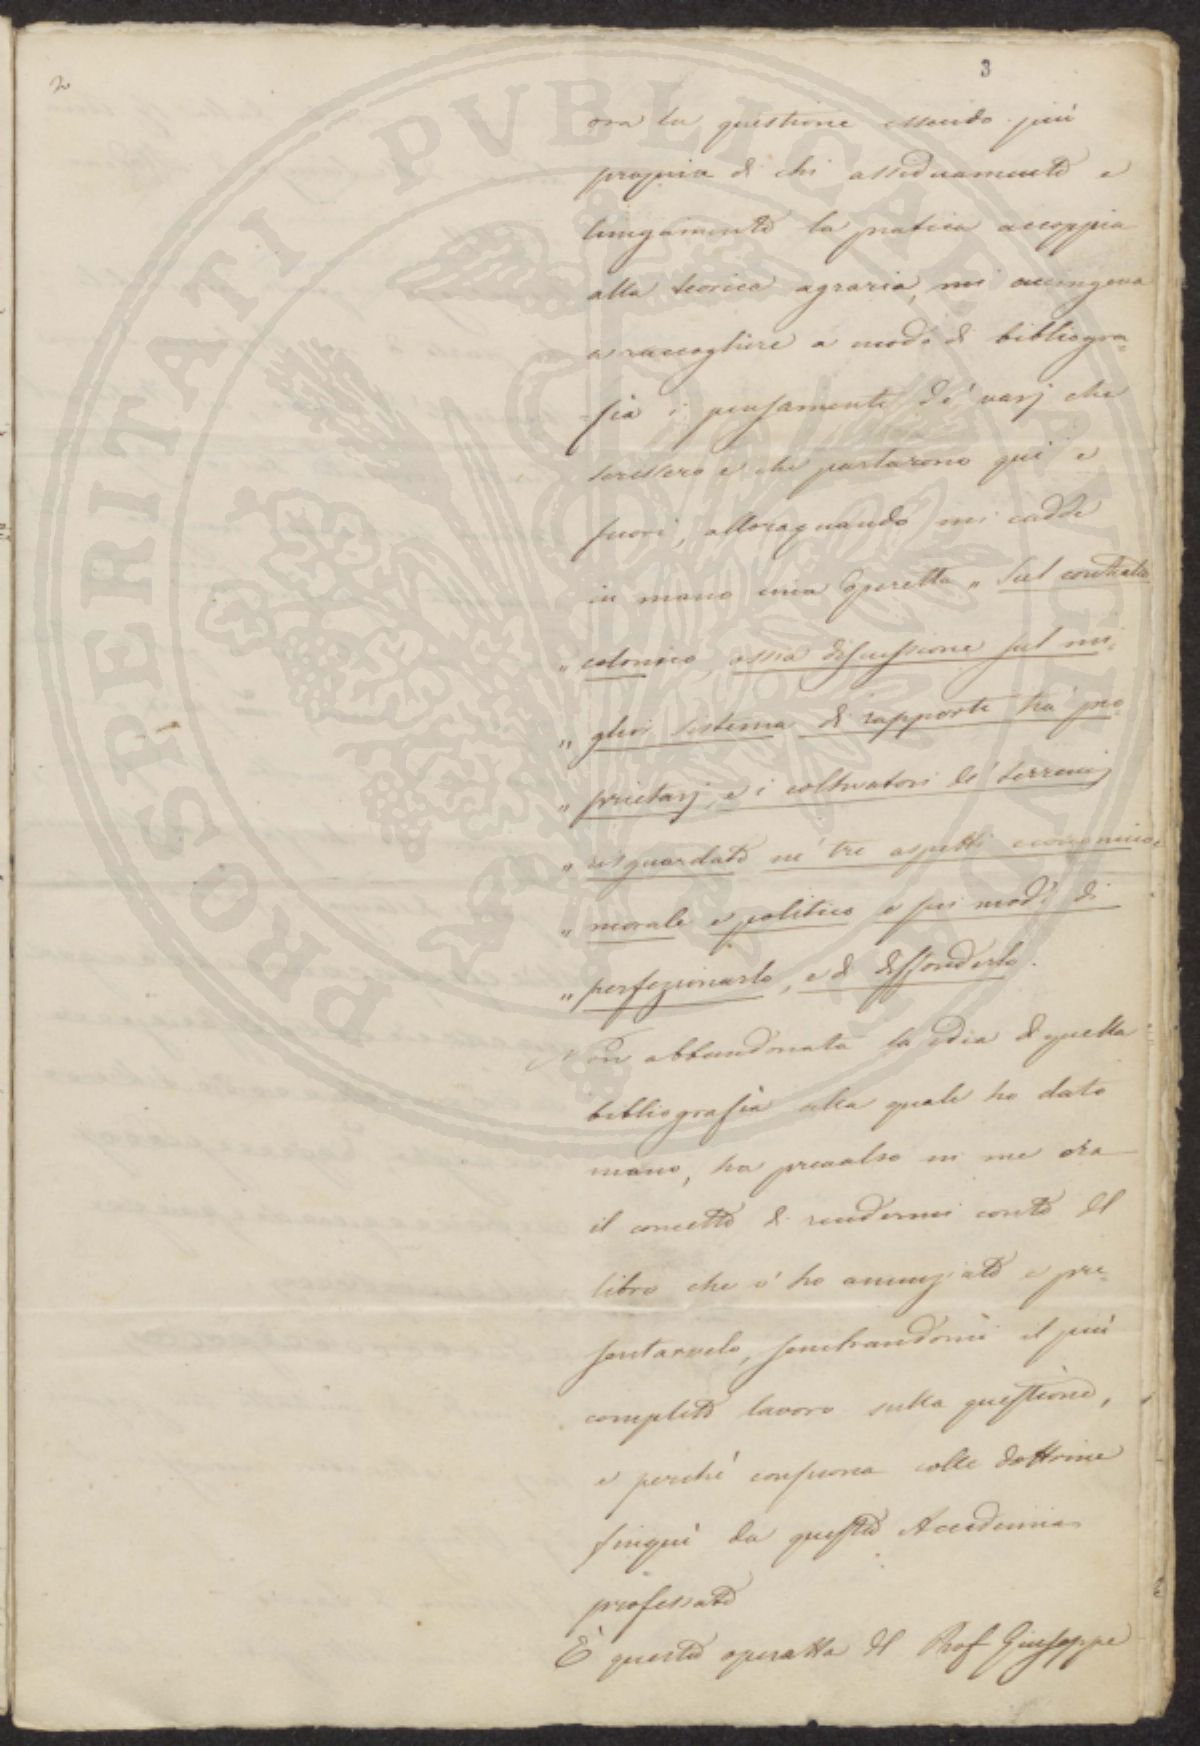 2
3
ora la questione essendo più
propria di chi assiduamente e
lungamente la pratica accoppia
alla teorica agraria, mi accingeva
a raccogliere a modo di bibliogra=
fia i pensamenti de' varj che
scrissero e che parlarono qui e
fuori, alloraquando mi cadde
in mano una Operetta „ Sul contratto
„ colonico, ossia discussione sul mi=
„ glior sistema di rapporti tra' pro=
„ prietarj, e i coltivatori de' terreni
„ risguardato ne' tre aspetti economico
„ morale e politico e su' modi di
„ perfezionarlo, e di diffonderlo.
Non abbandonata la idea di quella
bibliografia alla quale ho dato
mano, ha prevalso in me ora
il concetto di rendermi conto del
libro che v' ho annunziato e pre=
sentarvelo, sembrandomi il più
completo lavoro sulla questione,
e perchè consuona colle dottrine
finquì da questa Accademia
professate
È questa operetta del Prof Giuseppe
PROSPERITATI PVBLICAE AVGENDAE